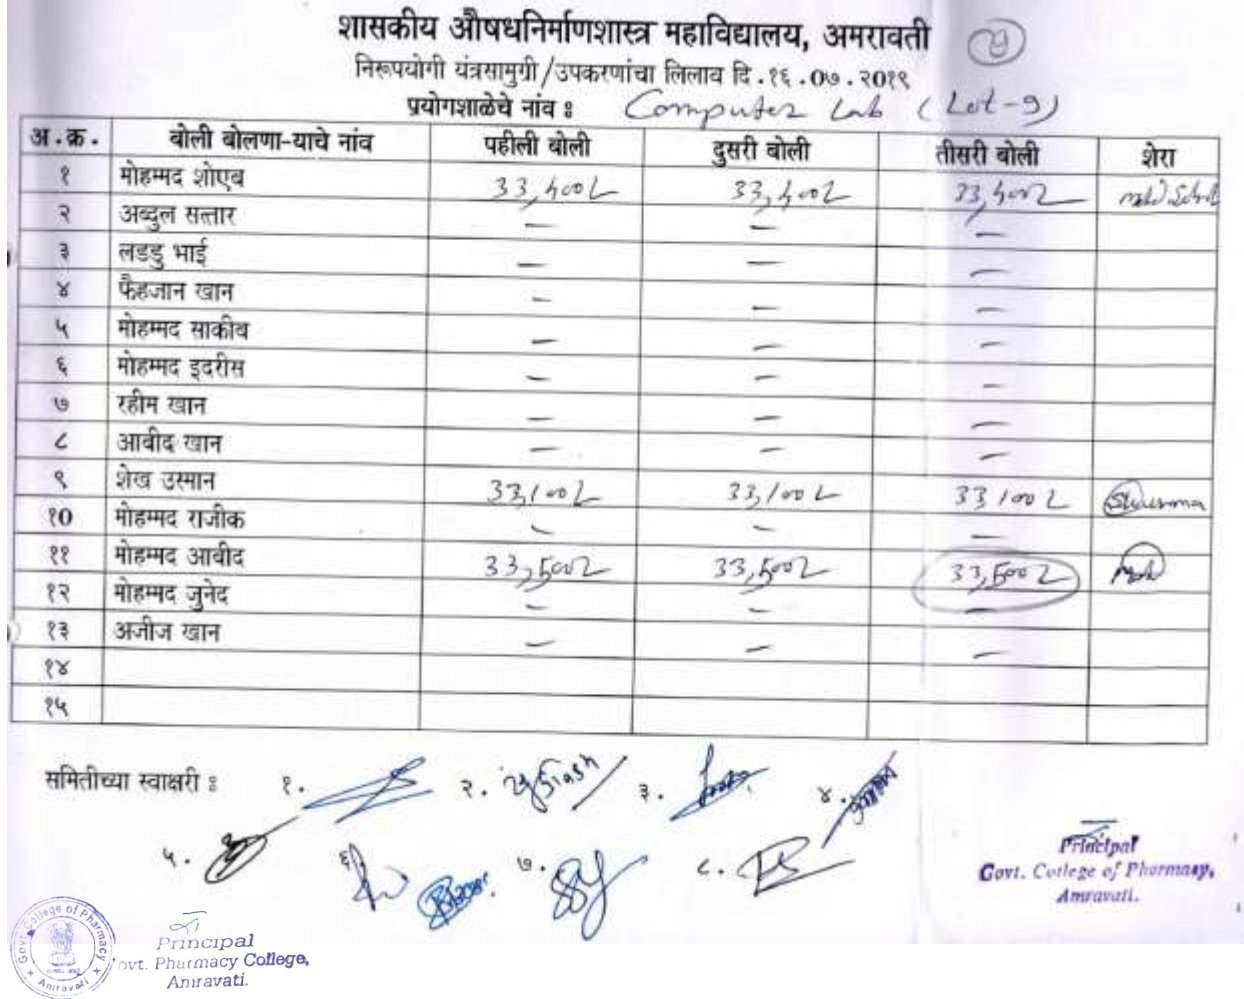 शासकीय औषधनिर्माणशास्त्र महाविद्यालय, अमरावती
निरूपयोगी यंत्रसामुग्री/उपकरणांचा लिलाव दि.१६.०७.२०१९
प्रयोगशाळेचे नांव : Computer Lab (Lot-9)
अ.क्र. बोली बोलणा-याचे नांव पहीली बोली दुसरी बोली तीसरी बोली शेरा
१ मोहम्मद शोएब 33,400/- 33,400/- 33,400/-
२ अब्दुल सत्तार — — —
३ लडडु भाई — — —
४ फैहजान खान — — —
५ मोहम्मद साकीब — — —
६ मोहम्मद इदरीस — — —
७ रहीम खान — — —
८ आबीद खान — — —
९ शेख उस्मान 33,100/- 33,100/- 33,100/-
१0 मोहम्मद राजीक — — —
११ मोहम्मद आबीद 33,500/- 33,500/- 33,500/-
१२ मोहम्मद जुनेद — — —
१३ अजीज खान — — —
१४
१५
समितीच्या स्वाक्षरी : १. २. ३. ४.
५. ६. ७. ८.
Principal
Govt. College of Pharmacy,
Amravati.
Govt. College of Pharmacy
Amravati
Principal
Govt. Pharmacy College,
Amravati.